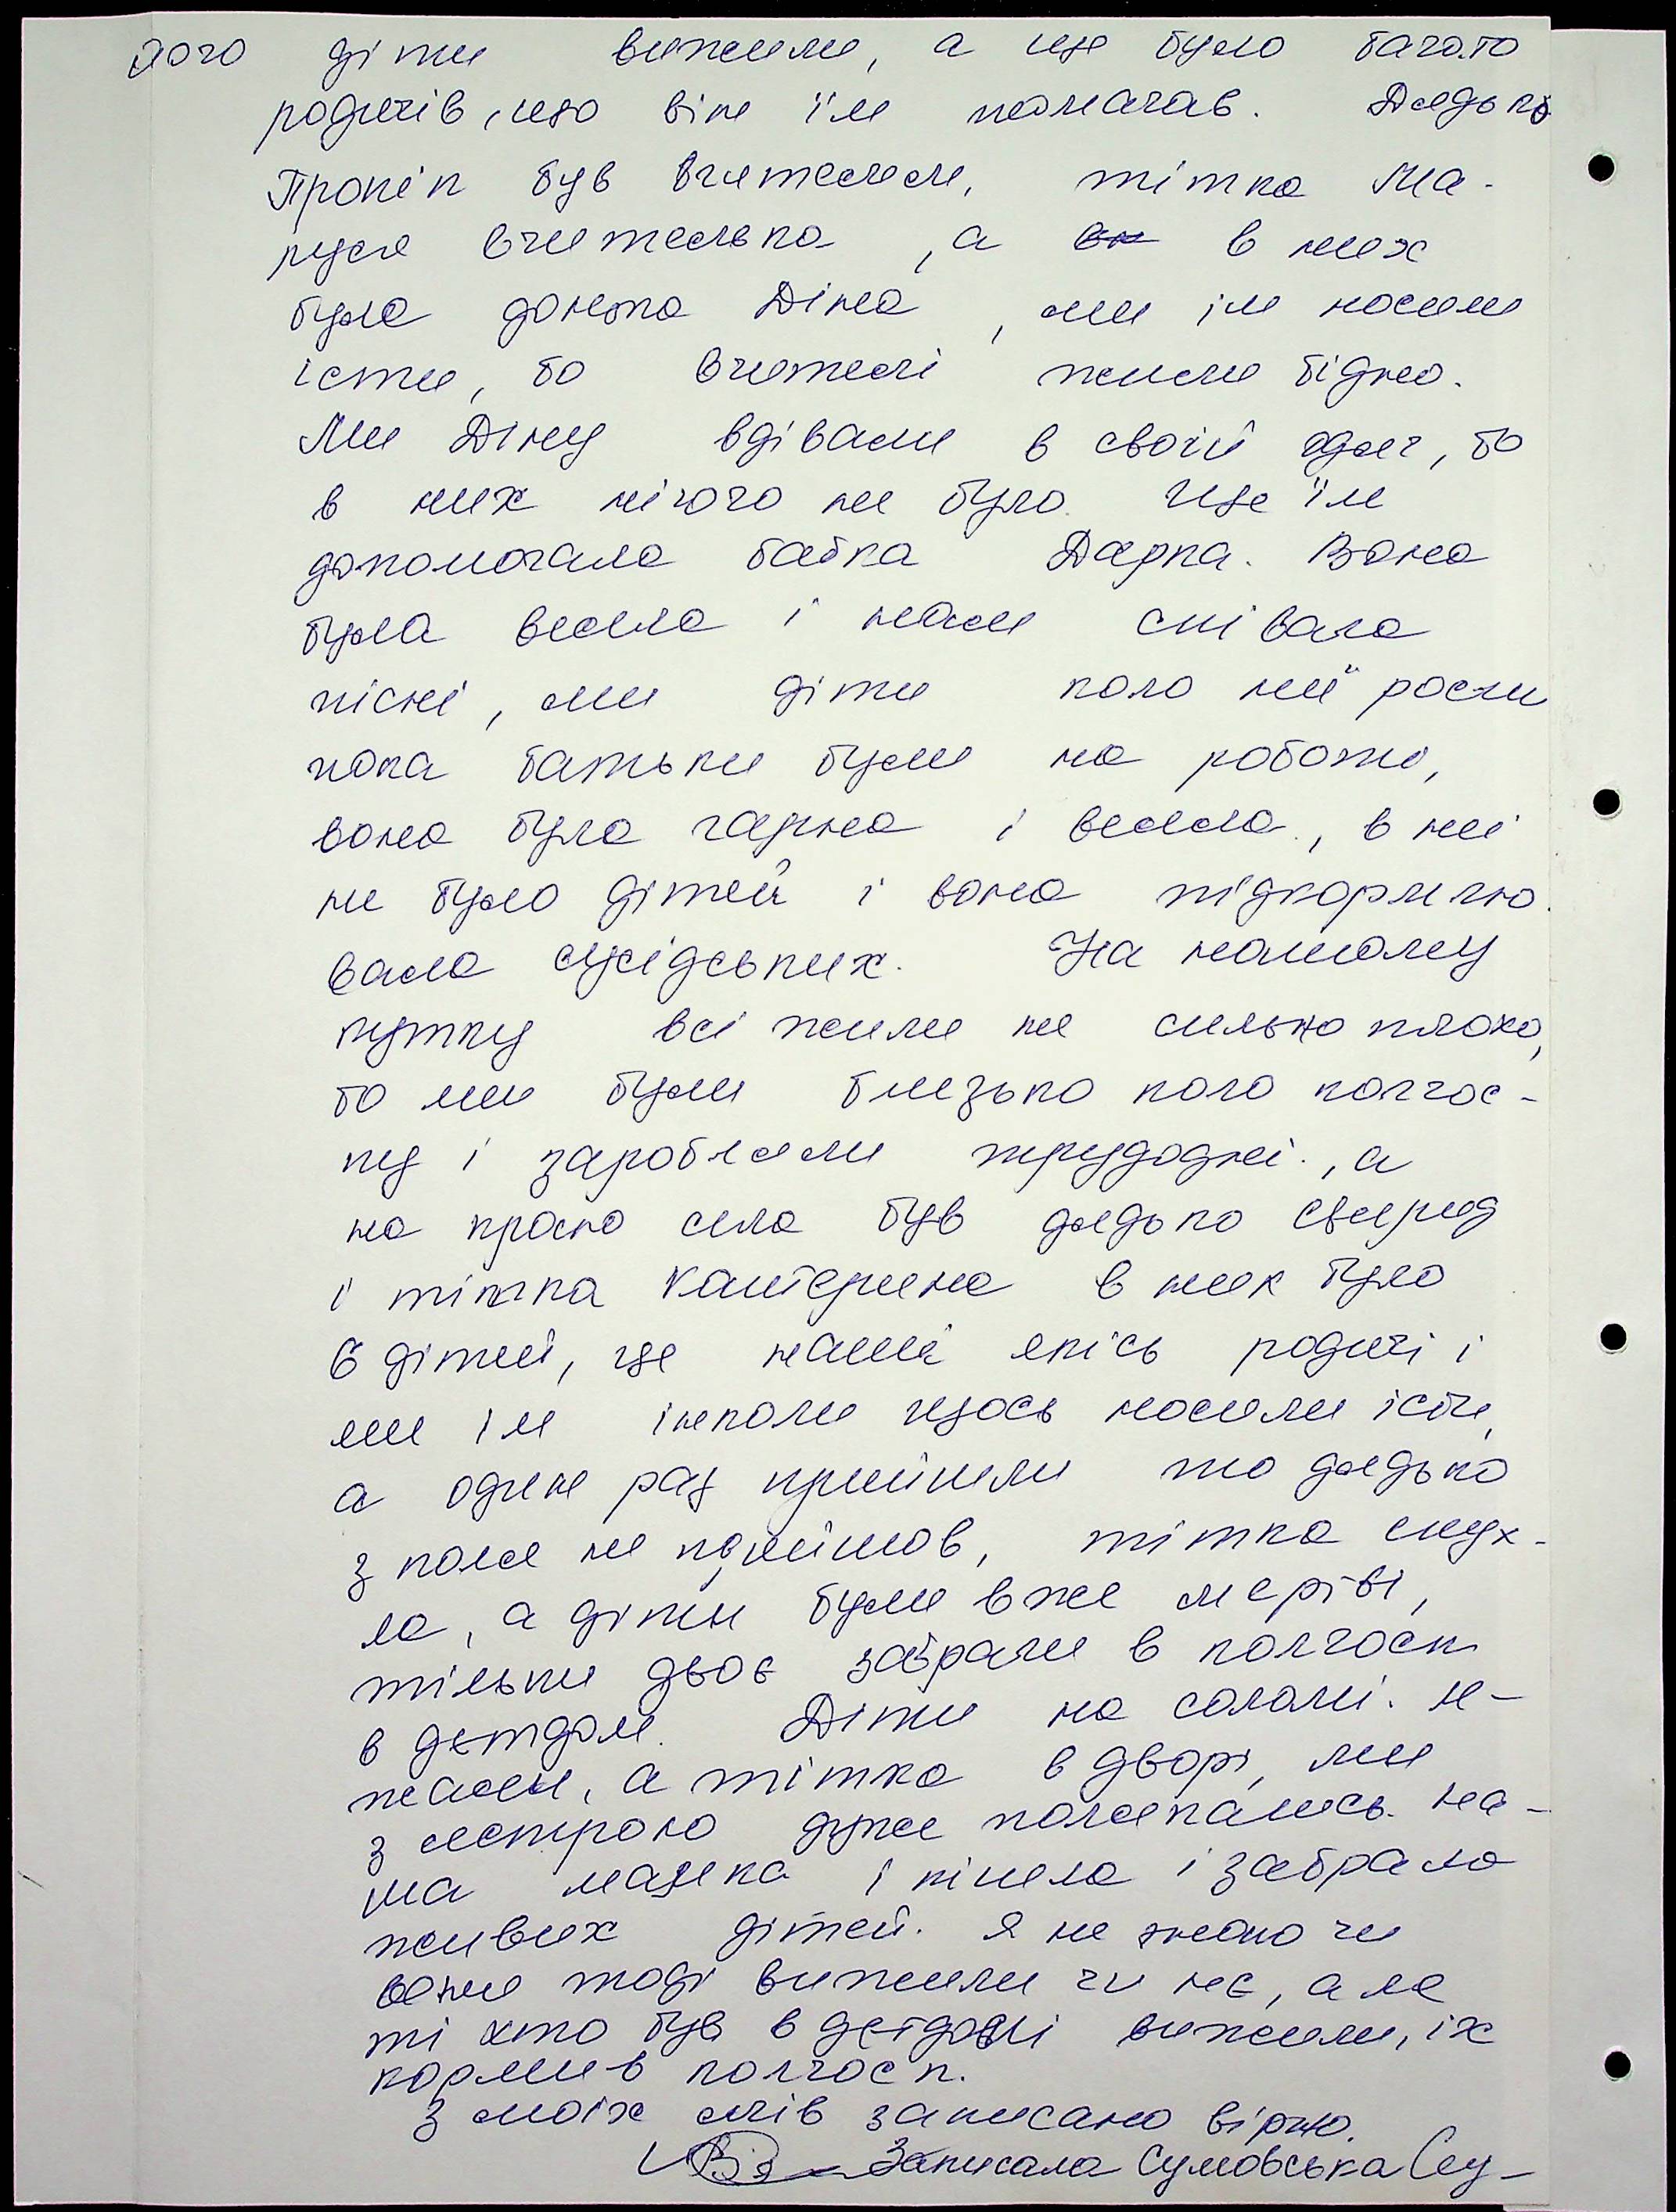 його діти вижили, а ще було багато
родичів, що він їм помагав. Дядько
Прокіп був вчителем, тітка Ма-
руся вчителька, а в них
була донька Діна, ми їм носили
їсти, бо вчителі жили бідно.
Ми Діну вдівали в свой одяг, бо
в них нічого не було. Ще їм
допомогала бабка Дарка. Вона
була весела і нам співала
пісні, ми діти коло неї росли
пока батьки були на роботі,
вона була гарна і весела, в неї
не було дітей і вона підкормлю
вала сусідських. На нашому
кутку всі жили не сильно плохо,
бо ми були близько коло колгос-
пу і заробляли трудодні, а
на краю села був дядько Свирид
і тітка Катерина в них було
6 дітей, це наші якісь родичі і
ми їм інколи щось носили їсти,
а один раз прийшли то дядько
з поля не прийшов, тітка спух-
ла, а діти були вже мертві,
тільки двоє забрали в колгосп
в детдом. Діти на соломі ле-
жали, а тітка в дворі, ми
з сестрою дуже полякались. На-
ша мамка і пішла і забрала
живих дітей. Я не знаю чи
вони тоді вижили чи нє, але
ті хто був в детдомі вижили, їх
кормив колгосп.
З моїх слів записано вірно.
Записала Сумовська Су-